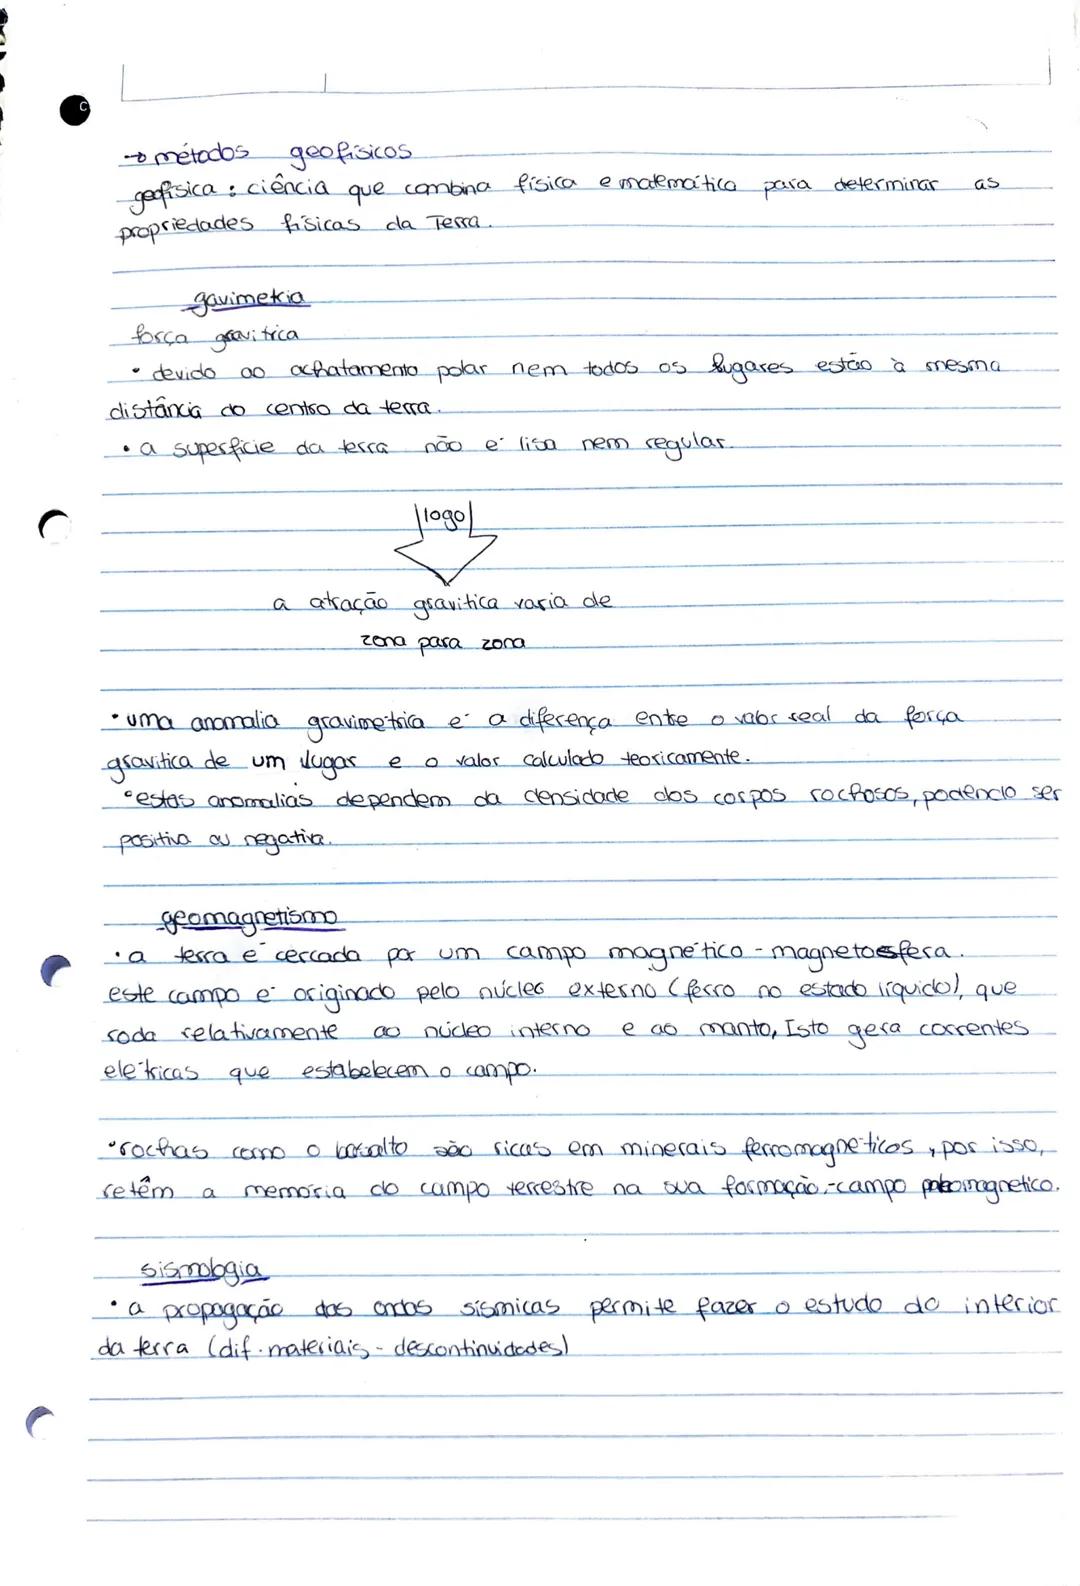 → métodos geofísicos
geofísica: ciência que combina física e matemática para determinar as
propriedades físicas da Terra.
gavimetria
força gravítica
• devido ao achatamento polar nem todos os lugares estão à mesma
distância do centro da terra.
• a superfície da terra não é lisa nem regular.
logo
a atração gravítica varia de
zona para zona
• uma anomalia gravimétrica é a diferença entre o valor real da força
gravítica de um lugar e o valor calculado teoricamente.
• estas anomalias dependem da densidade dos corpos rochosos, podendo ser
positiva ou negativa.
geomagnetismo
• a terra é cercada por um campo magnético - magnetoesfera.
este campo é originado pelo núcleo externo (ferro no estado líquido), que
roda relativamente ao núcleo interno e ao manto, Isto gera correntes
elétricas que estabelecem o campo.
• rochas como o basalto são ricas em minerais ferromagnéticos, por isso,
retêm a memória do campo terrestre na sua formação,-campo paleomagnetico.
sismologia
• a propagação das ondas sísmicas permite fazer o estudo do interior
da terra (dif. materiais - descontinuidades)